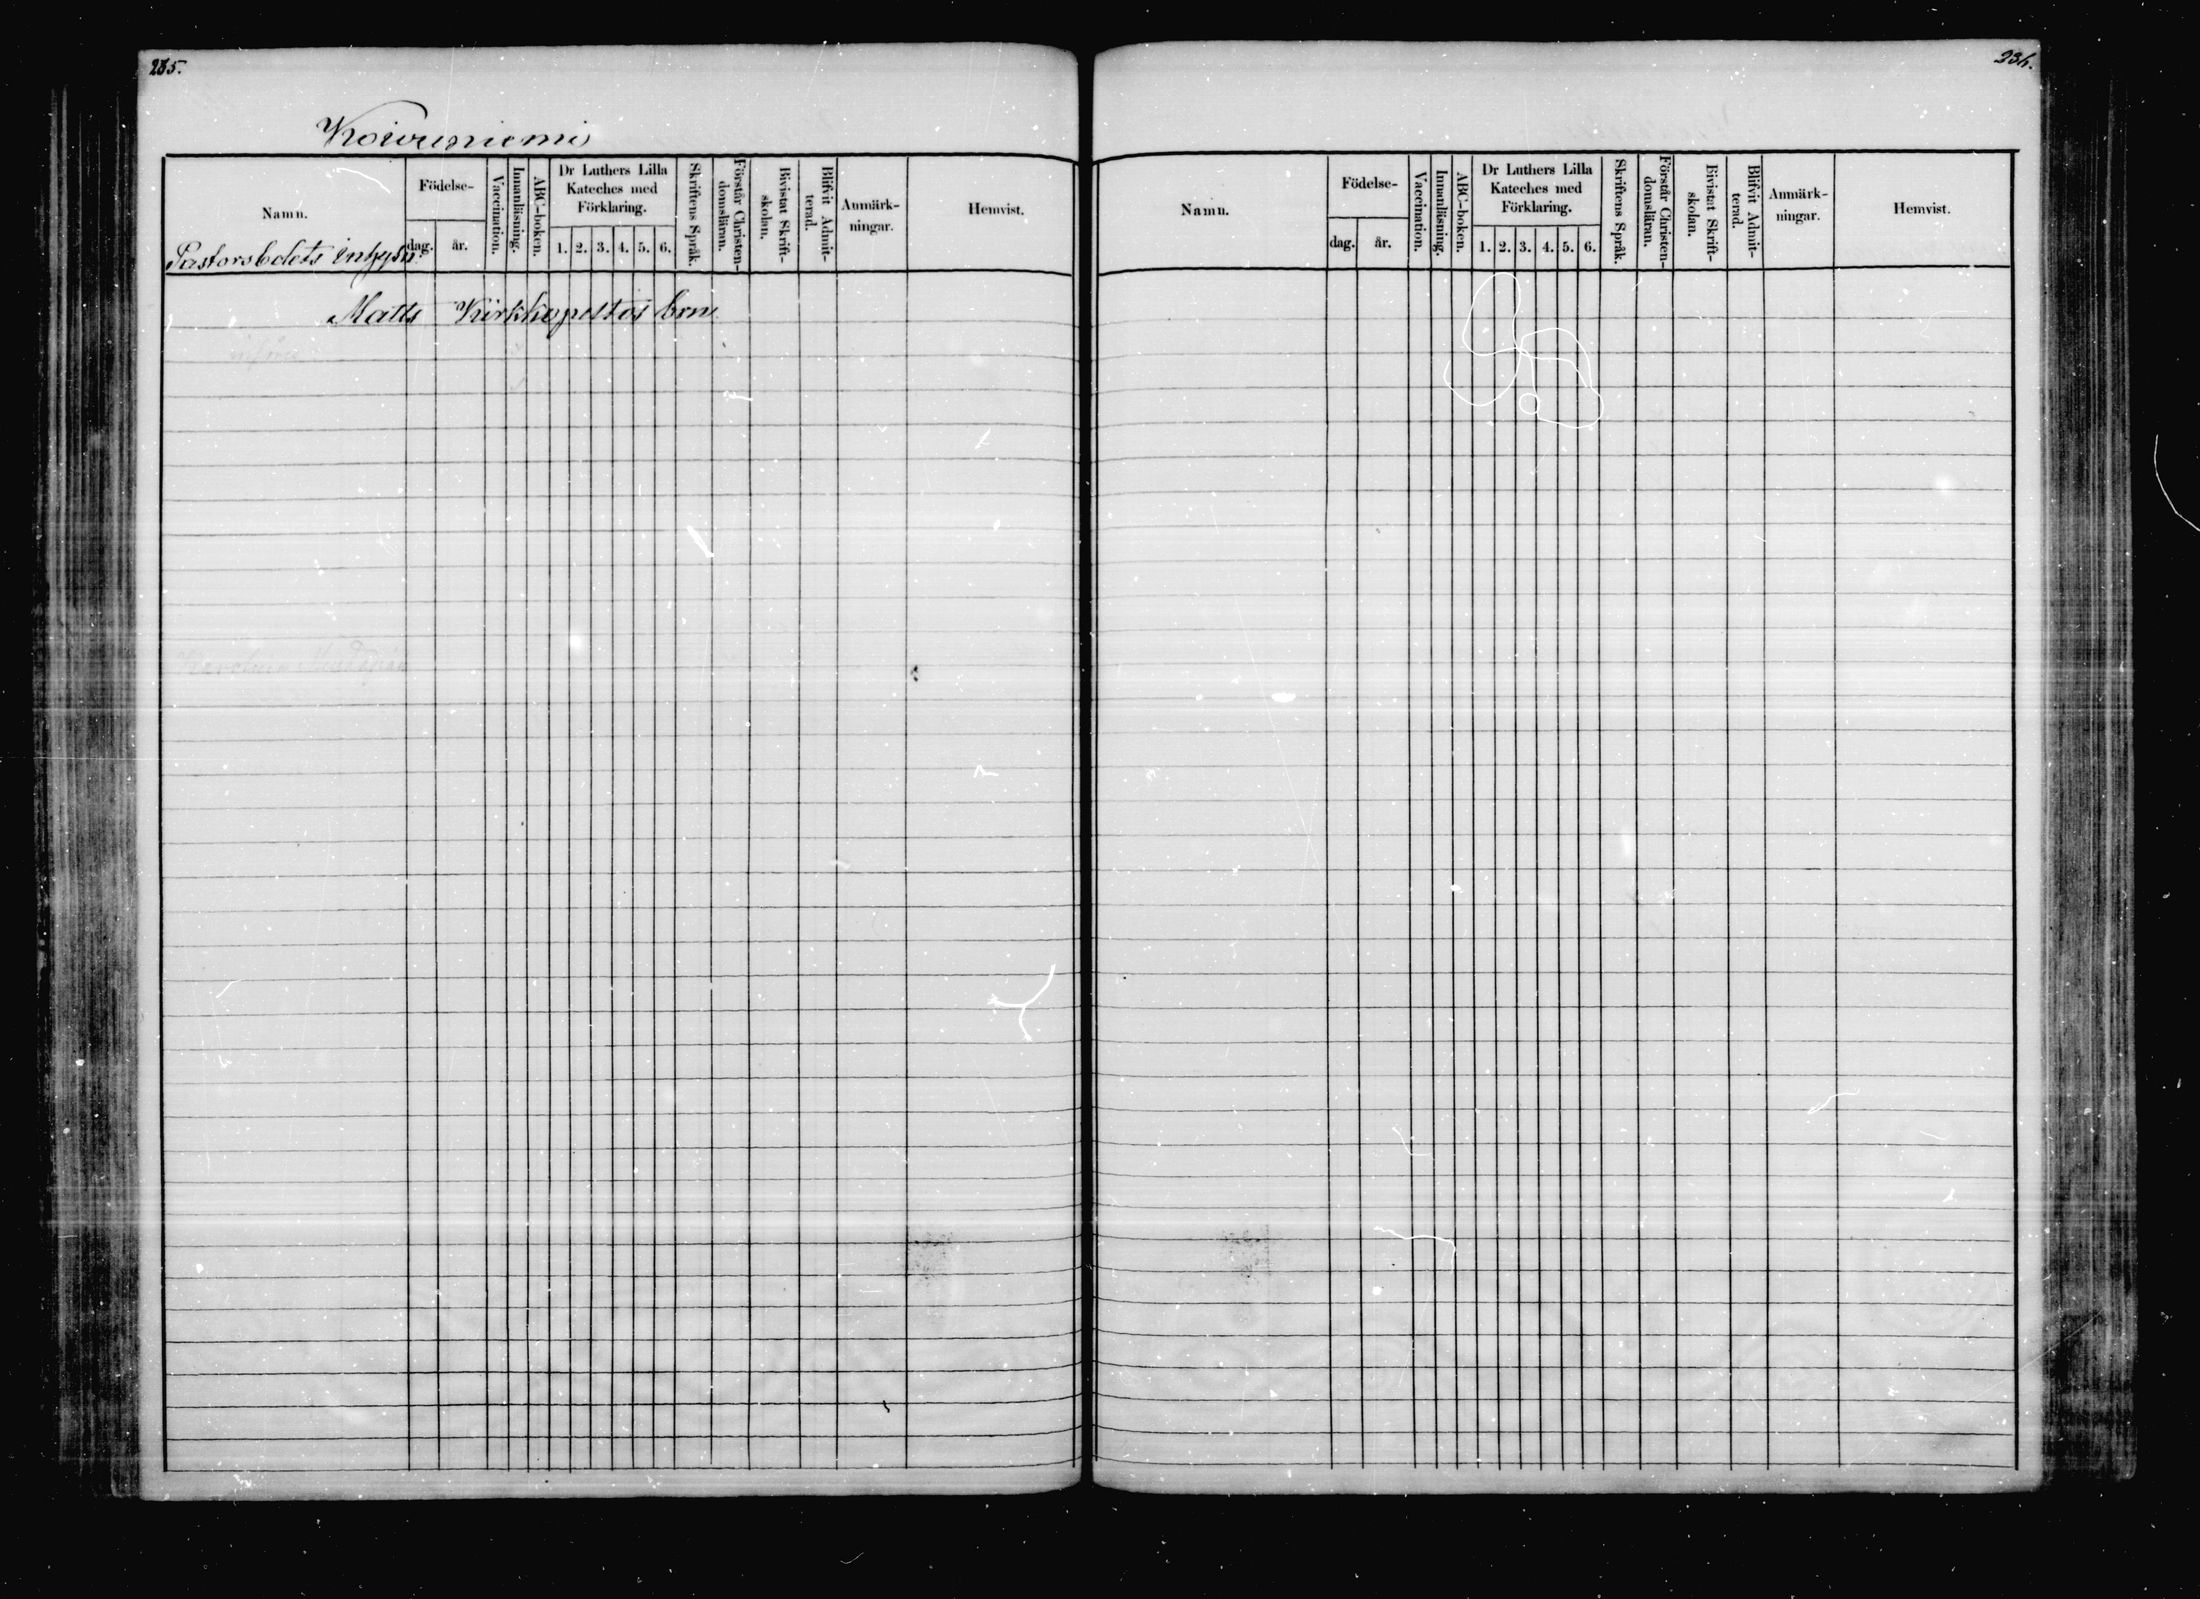 235.
Koivuniemi
Namn. Födelse- dag. år. Vaccination. Innanläsning. ABC-boken. Dr Luthers Lilla Kateches med Förklaring. 1. 2. 3. 4. 5. 6. Skriftens Språk. Förstår Christen-domsläran. Bivistat Skrift-skolan. Blifvit Admit-terad. Anmärk-ningar. Hemvist.
Pastorsbolets inhysn.
Matts Kirkkopeltos brn
236.
Namn. Födelse- dag. år. Vaccination. Innanläsning. ABC-boken. Dr Luthers Lilla Kateches med Förklaring. 1. 2. 3. 4. 5. 6. Skriftens Språk. Förstår Christen-domsläran. Bivistat Skrift-skolan. Blifvit Admit-terad. Anmärk-ningar. Hemvist.